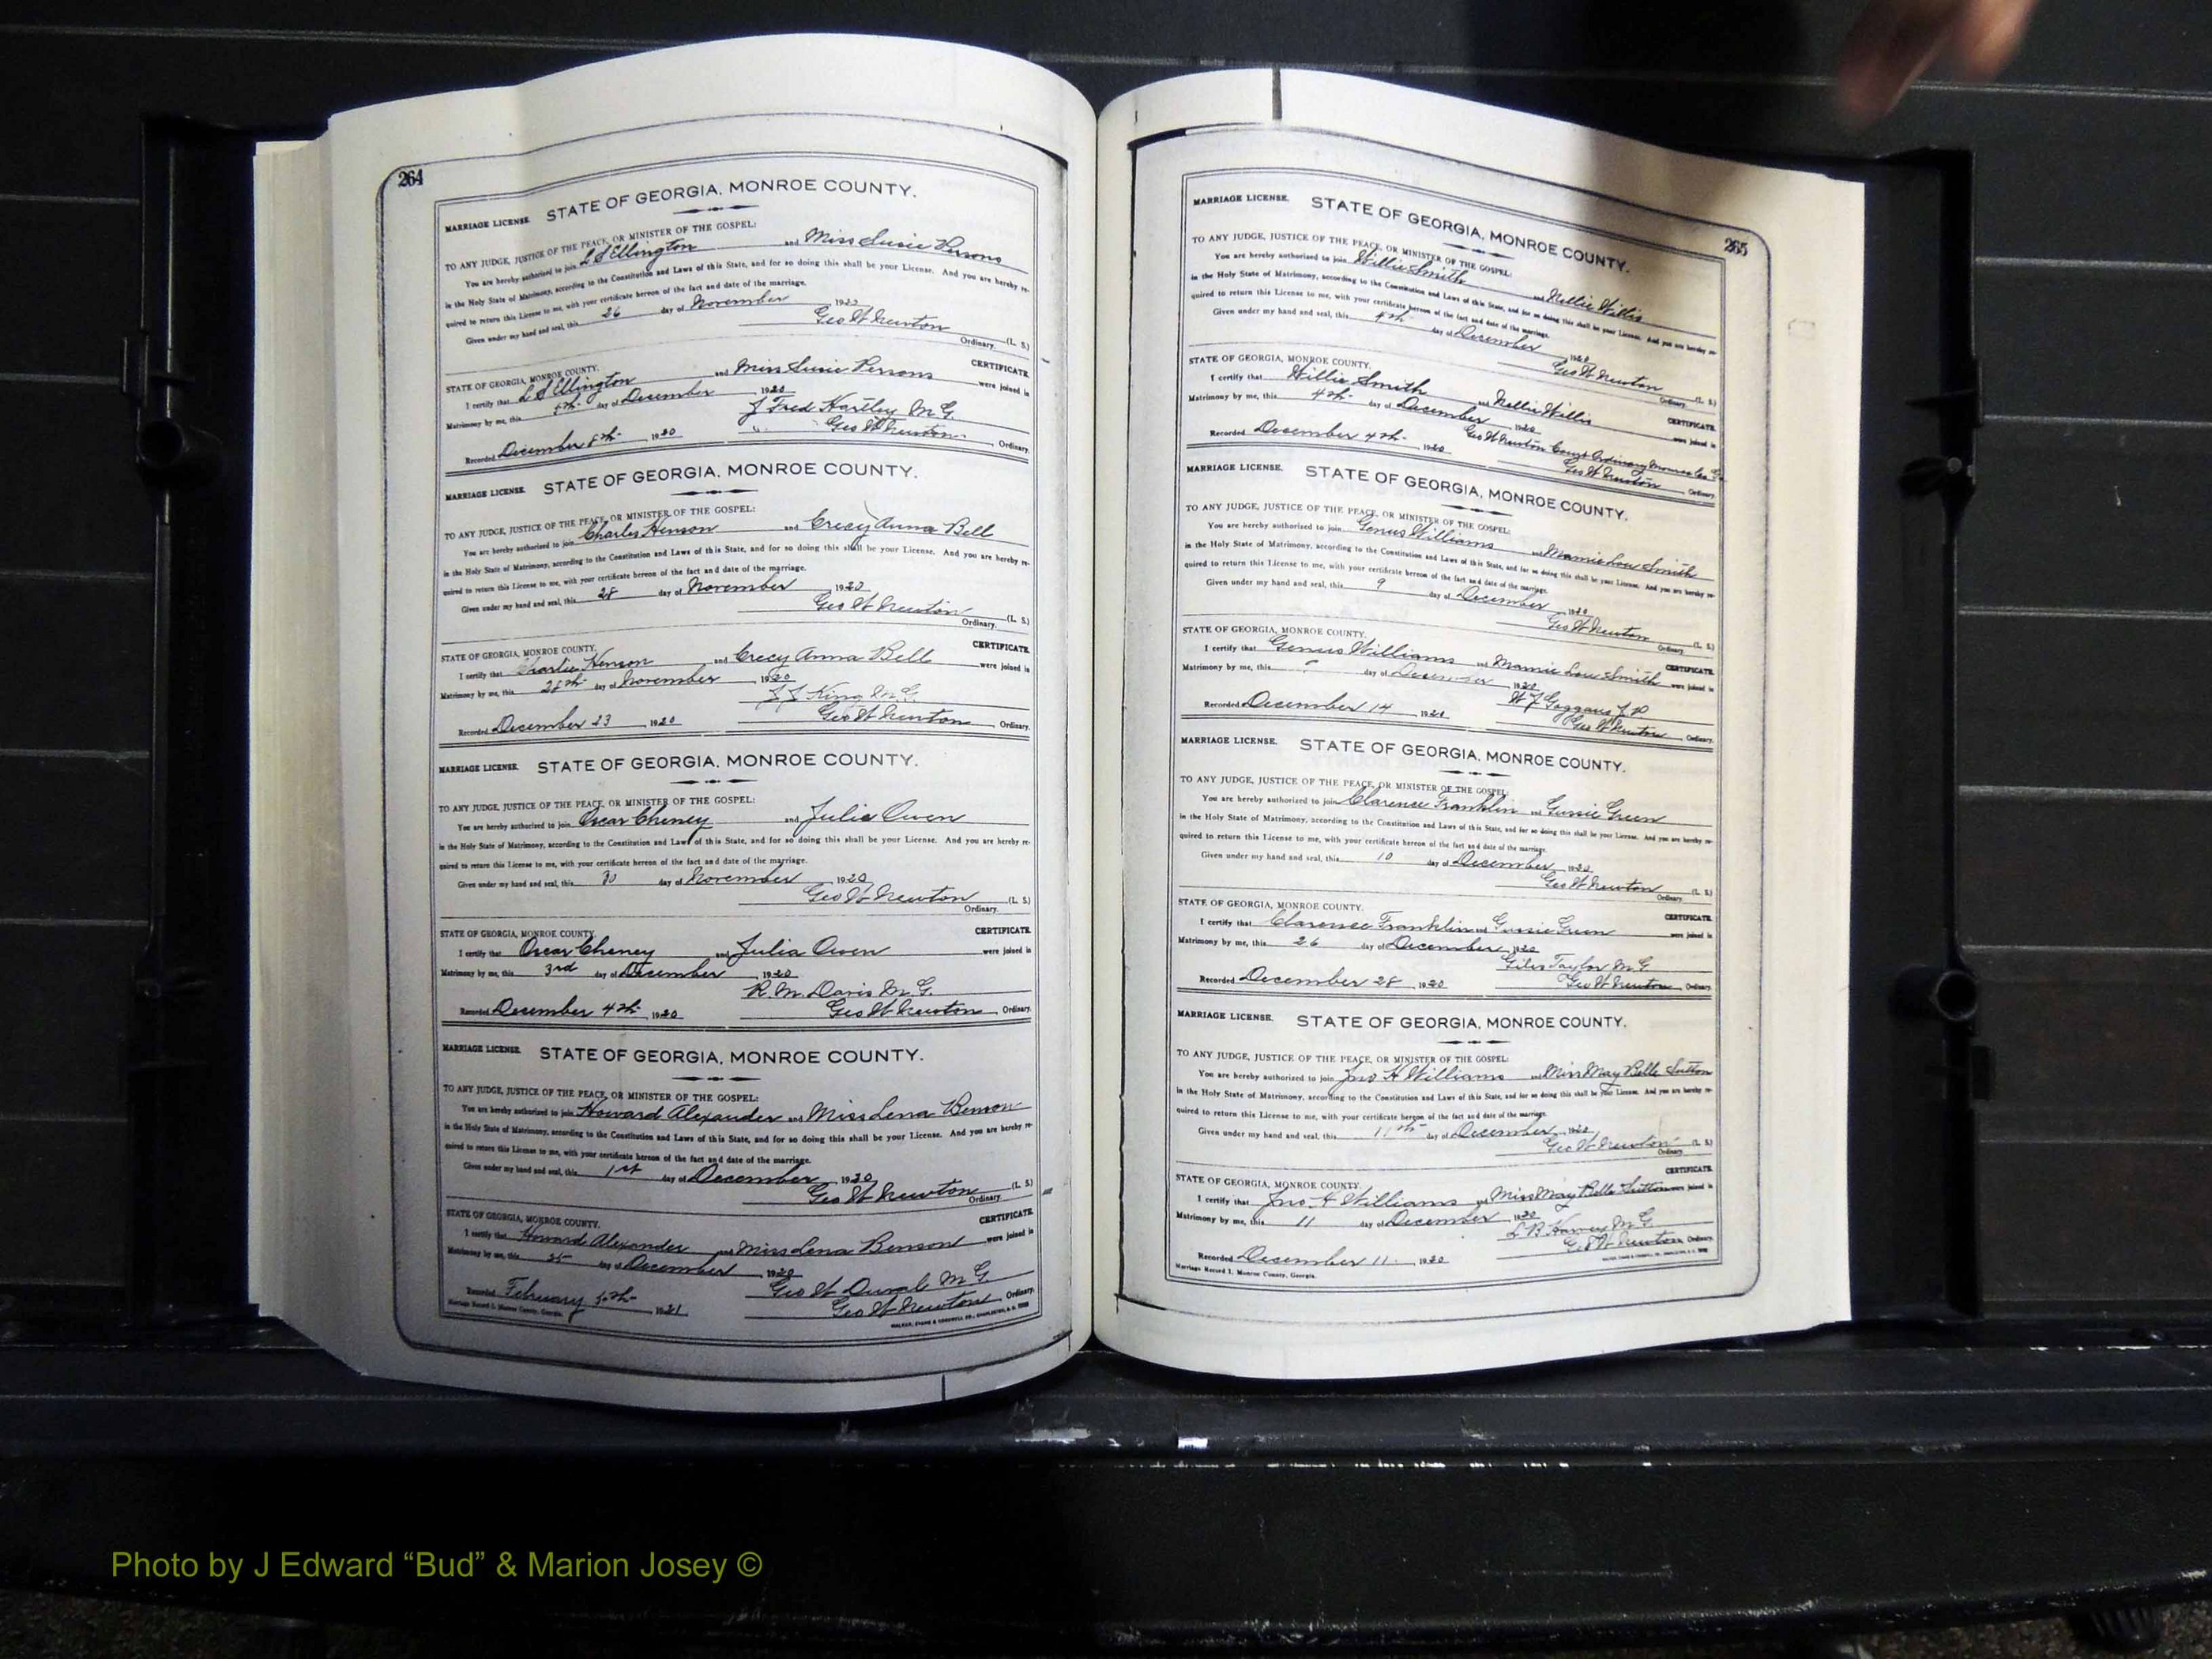 264
MARRIAGE LICENSE. STATE OF GEORGIA, MONROE COUNTY.
TO ANY JUDGE, JUSTICE OF THE PEACE, OR MINISTER OF THE GOSPEL:
You are hereby authorized to join L S Ellington and Miss Susie Persons
in the Holy State of Matrimony, according to the Constitution and Laws of this State, and for so doing this shall be your License. And you are hereby re-
quired to return this License to me, with your certificate hereon of the fact and date of the marriage.
Given under my hand and seal, this 26 day of November 1920
Geo W Newton (L. S.)
Ordinary.
STATE OF GEORGIA, MONROE COUNTY. CERTIFICATE.
I certify that L S Ellington and Miss Susie Persons were joined in
Matrimony by me, this day of December 1920
J Fred Hartley M G.
Recorded December 1920 Geo W Newton, Ordinary.
MARRIAGE LICENSE. STATE OF GEORGIA, MONROE COUNTY.
TO ANY JUDGE, JUSTICE OF THE PEACE, OR MINISTER OF THE GOSPEL:
You are hereby authorized to join Charles Henson and Crecy Anna Bell
in the Holy State of Matrimony, according to the Constitution and Laws of this State, and for so doing this shall be your License. And you are hereby re-
quired to return this License to me, with your certificate hereon of the fact and date of the marriage.
Given under my hand and seal, this 28 day of November, 1920.
Geo W Newton (L. S.)
Ordinary.
STATE OF GEORGIA, MONROE COUNTY. CERTIFICATE.
I certify that Charlie Henson and Crecy Anna Bell were joined in
Matrimony by me, this 28th day of November, 1920
J J King M G.
Recorded December 23, 1920 Geo W Newton, Ordinary.
MARRIAGE LICENSE. STATE OF GEORGIA, MONROE COUNTY.
TO ANY JUDGE, JUSTICE OF THE PEACE, OR MINISTER OF THE GOSPEL:
You are hereby authorized to join Oscar Cheney and Julia Owen
in the Holy State of Matrimony, according to the Constitution and Laws of this State, and for so doing this shall be your License. And you are hereby re-
quired to return this License to me, with your certificate hereon of the fact and date of the marriage.
Given under my hand and seal, this 30 day of November, 1920
Geo W Newton (L. S.)
Ordinary.
STATE OF GEORGIA, MONROE COUNTY. CERTIFICATE.
I certify that Oscar Cheney and Julia Owen were joined in
Matrimony by me, this 3rd day of December, 1920
R. M. Davis M. G.
Recorded December 4th, 1920 Geo W Newton, Ordinary.
MARRIAGE LICENSE. STATE OF GEORGIA, MONROE COUNTY.
TO ANY JUDGE, JUSTICE OF THE PEACE, OR MINISTER OF THE GOSPEL:
You are hereby authorized to join Howard Alexander and Miss Lena Benson
in the Holy State of Matrimony, according to the Constitution and Laws of this State, and for so doing this shall be your License. And you are hereby re-
quired to return this License to me, with your certificate hereon of the fact and date of the marriage.
Given under my hand and seal, this 1st day of December, 1920
Geo W Newton (L. S.)
Ordinary.
STATE OF GEORGIA, MONROE COUNTY. CERTIFICATE.
I certify that Howard Alexander and Miss Lena Benson were joined in
Matrimony by me, this day of December, 1920
Geo W M G
Recorded February 1921 Geo W Newton, Ordinary.
Marriage Record I, Monroe County, Georgia. WALKER, EVANS & COGSWELL CO., CHARLESTON, S. C.
265
MARRIAGE LICENSE. STATE OF GEORGIA, MONROE COUNTY.
TO ANY JUDGE, JUSTICE OF THE PEACE, OR MINISTER OF THE GOSPEL:
You are hereby authorized to join Willie Smith and Nellie Willis
in the Holy State of Matrimony, according to the Constitution and Laws of this State, and for so doing this shall be your License. And you are hereby re-
quired to return this License to me, with your certificate hereon of the fact and date of the marriage.
Given under my hand and seal, this 4th day of December, 1920
Geo W Newton (L. S.)
Ordinary.
STATE OF GEORGIA, MONROE COUNTY. CERTIFICATE.
I certify that Willie Smith and Nellie Willis were joined in
Matrimony by me, this 4th day of December 1920
Geo W Newton Ordinary Monroe Co Ga
Recorded December 4th, 1920 Geo W Newton, Ordinary.
MARRIAGE LICENSE. STATE OF GEORGIA, MONROE COUNTY.
TO ANY JUDGE, JUSTICE OF THE PEACE, OR MINISTER OF THE GOSPEL:
You are hereby authorized to join Genus Williams and Mamie Lou Smith
in the Holy State of Matrimony, according to the Constitution and Laws of this State, and for so doing this shall be your License. And you are hereby re-
quired to return this License to me, with your certificate hereon of the fact and date of the marriage.
Given under my hand and seal, this 9 day of December, 1920
Geo W Newton (L. S.)
Ordinary.
STATE OF GEORGIA, MONROE COUNTY. CERTIFICATE.
I certify that Genus Williams and Mamie Lou Smith were joined in
Matrimony by me, this day of December, 1920
W J Goggans J P
Recorded December 14, 1920 Geo W Newton, Ordinary.
MARRIAGE LICENSE. STATE OF GEORGIA, MONROE COUNTY.
TO ANY JUDGE, JUSTICE OF THE PEACE, OR MINISTER OF THE GOSPEL:
You are hereby authorized to join Clarence Franklin and Gussie Green
in the Holy State of Matrimony, according to the Constitution and Laws of this State, and for so doing this shall be your License. And you are hereby re-
quired to return this License to me, with your certificate hereon of the fact and date of the marriage.
Given under my hand and seal, this 10 day of December, 1920
Geo W Newton (L. S.)
Ordinary.
STATE OF GEORGIA, MONROE COUNTY. CERTIFICATE.
I certify that Clarence Franklin and Gussie Green were joined in
Matrimony by me, this 26 day of December, 1920
Giles Taylor M G
Recorded December 28, 1920 Geo W Newton, Ordinary.
MARRIAGE LICENSE. STATE OF GEORGIA, MONROE COUNTY.
TO ANY JUDGE, JUSTICE OF THE PEACE, OR MINISTER OF THE GOSPEL:
You are hereby authorized to join Jno H Williams and Miss May Belle Sutton
in the Holy State of Matrimony, according to the Constitution and Laws of this State, and for so doing this shall be your License. And you are hereby re-
quired to return this License to me, with your certificate hereon of the fact and date of the marriage.
Given under my hand and seal, this 11th day of December, 1920
Geo W Newton (L. S.)
Ordinary.
CERTIFICATE.
STATE OF GEORGIA, MONROE COUNTY.
I certify that Jno. H Williams and Miss May Belle Sutton were joined in
Matrimony by me, this 11 day of December, 1920
L B Harvey M G.
Recorded December 11, 1920 Geo W Newton, Ordinary.
Marriage Record I, Monroe County, Georgia. WALKER, EVANS & COGSWELL CO., CHARLESTON, S. C.
Photo by J Edward “Bud” & Marion Josey ©